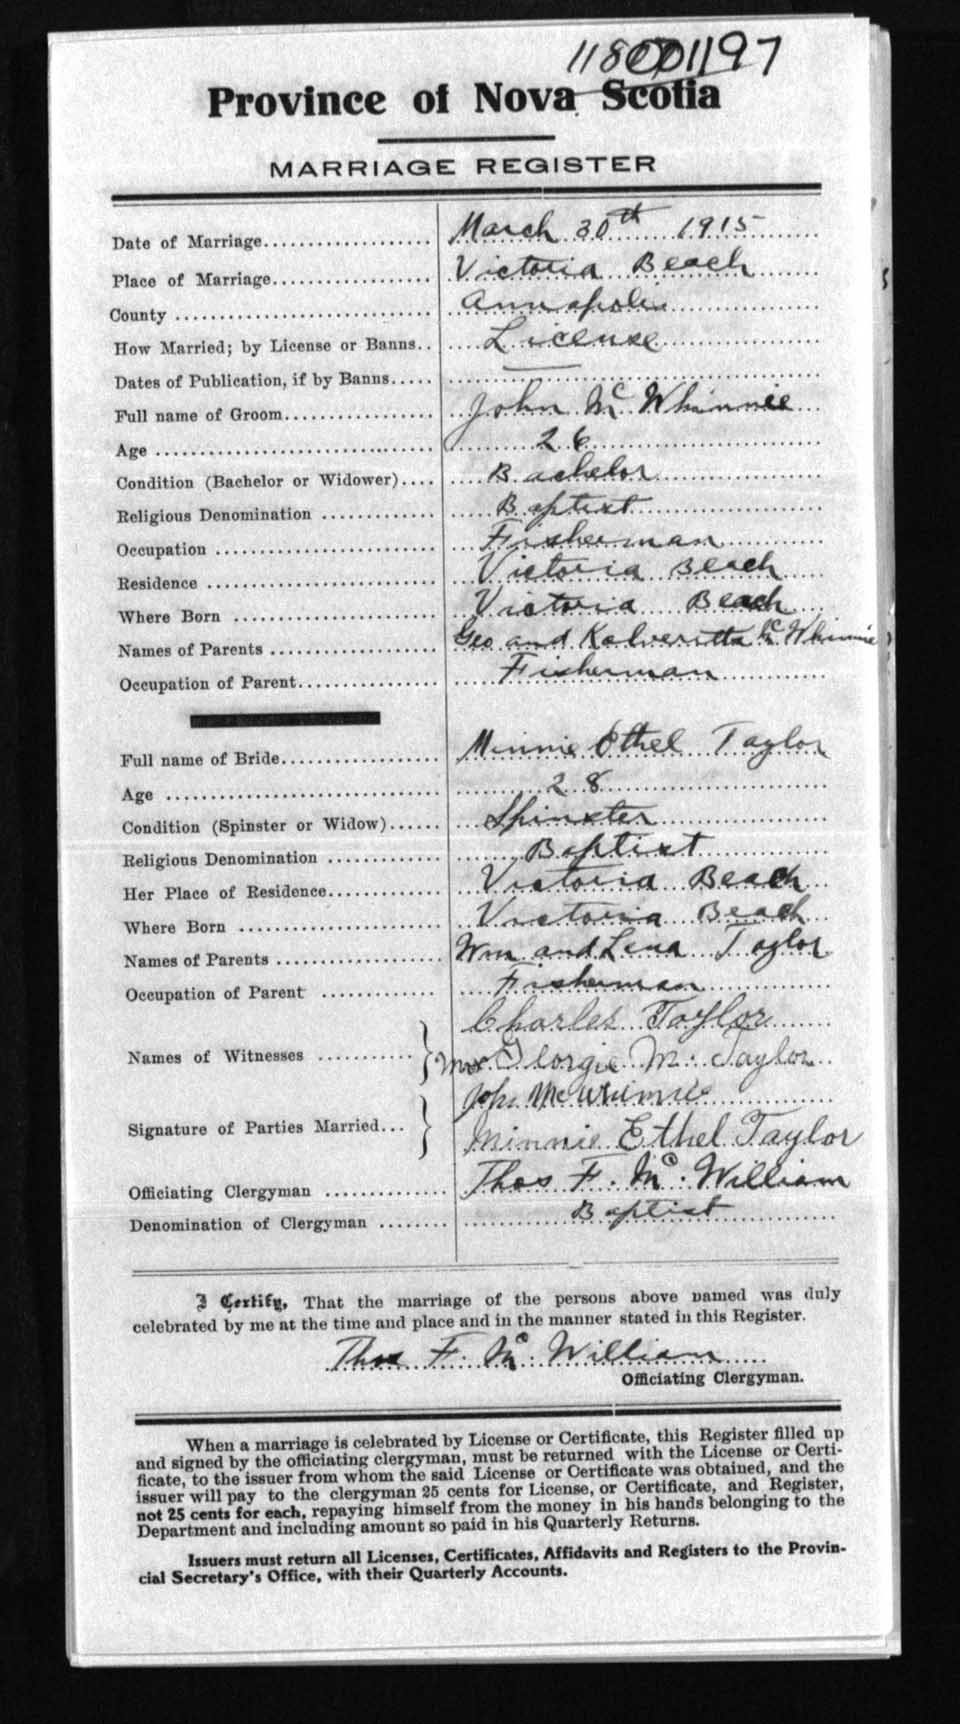 001197
Province of Nova Scotia
MARRIAGE REGISTER
Date of Marriage.................... March 30th 1915
Place of Marriage................... Victoria Beach
County ............................. Annapolis
How Married; by License or Banns.. License
Dates of Publication, if by Banns..... —
Full name of Groom.................. John Mc Whinnie
Age ................................ 26
Condition (Bachelor or Widower).... Bachelor
Religious Denomination ............. Baptist
Occupation ......................... Fisherman
Residence .......................... Victoria Beach
Where Born ......................... Victoria Beach
Names of Parents ................... Geo and Mc Whinnie
Occupation of Parent................ Fisherman
Full name of Bride.................. Minnie Ethel Taylor
Age ................................ 28
Condition (Spinster or Widow)...... Spinster
Religious Denomination ............. Baptist
Her Place of Residence.............. Victoria Beach
Where Born ......................... Victoria Beach
Names of Parents ................... Wm and Lena Taylor
Occupation of Parent ............... Fisherman
Charles Taylor
Names of Witnesses ........... Mrs Georgie M. Taylor
John McWhinnie
Signature of Parties Married... Minnie Ethel Taylor
Officiating Clergyman .............. Thos F. Mc. William
Denomination of Clergyman ........ Baptist
I Certify, That the marriage of the persons above named was duly
celebrated by me at the time and place and in the manner stated in this Register.
Thos F. Mc. William
Officiating Clergyman.
When a marriage is celebrated by License or Certificate, this Register filled up
and signed by the officiating clergyman, must be returned with the License or Certi-
ficate, to the issuer from whom the said License or Certificate was obtained, and the
issuer will pay to the clergyman 25 cents for License, or Certificate, and Register,
not 25 cents for each, repaying himself from the money in his hands belonging to the
Department and including amount so paid in his Quarterly Returns.
Issuers must return all Licenses, Certificates, Affidavits and Registers to the Provin-
cial Secretary's Office, with their Quarterly Accounts.